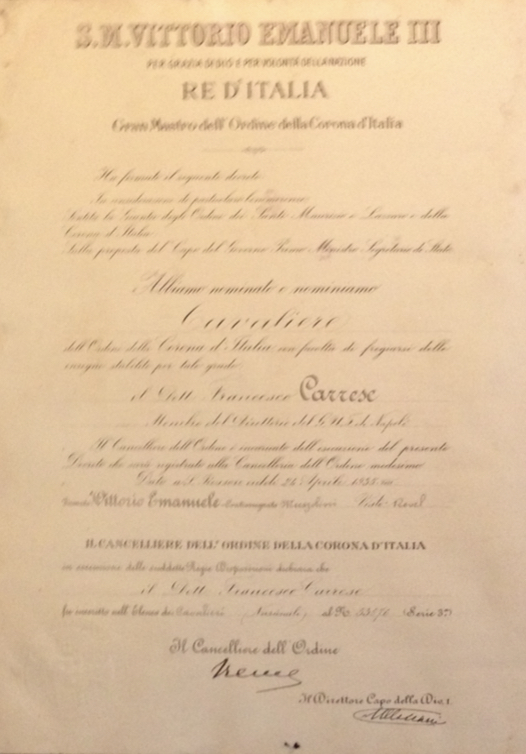 S.M. VITTORIO EMANUELE III
PER GRAZIA DI DIO E PER VOLONTÀ DELLA NAZIONE
RE D'ITALIA
Gran Mastro dell'Ordine della Corona d'Italia
Ha firmato il seguente decreto
In considerazione di particolari benemerenze
Sentita la Giunta degli Ordini dei Santi Maurizio e Lazzaro e della
Corona d'Italia
Sulla proposta del Capo del Governo Primo Ministro Segretario di Stato
Abbiamo nominato e nominiamo
Cavaliere
dell'Ordine della Corona d'Italia con facoltà di fregiarsi delle
insegne stabilite per tale grado
il Dott. Francesco Carrese
Membro del Direttorio del G.U.F. di Napoli
Il Cancelliere dell'Ordine è incaricato dell'esecuzione del presente
Decreto che sarà registrato alla Cancelleria dell'Ordine medesimo
Dato a S. Rossore addì 24 Aprile
Firmato Vittorio Emanuele Controsegnato Mussolini
IL CANCELLIERE DELL'ORDINE DELLA CORONA D'ITALIA
in esecuzione delle suddette Regie Disposizioni dichiara che
il Dott. Francesco Carrese
fu inscritto nell'Elenco dei Cavalieri Nazionali, al N. (Serie 3ª)
Il Cancelliere dell'Ordine
Il Direttore Capo della Div. 1.